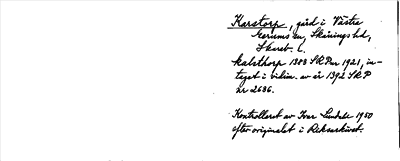 Karstorp, gård i Västra
Gerums sn, Skånings hd,
Skarab. l.
Kalsthorp 1383 SRPnr 1921, in-
taget i vidim. av år 1392 SRP
nr 2686.
Kontrollerat av Ivar Lundahl 1950
efter originalet i Riksarkivet.